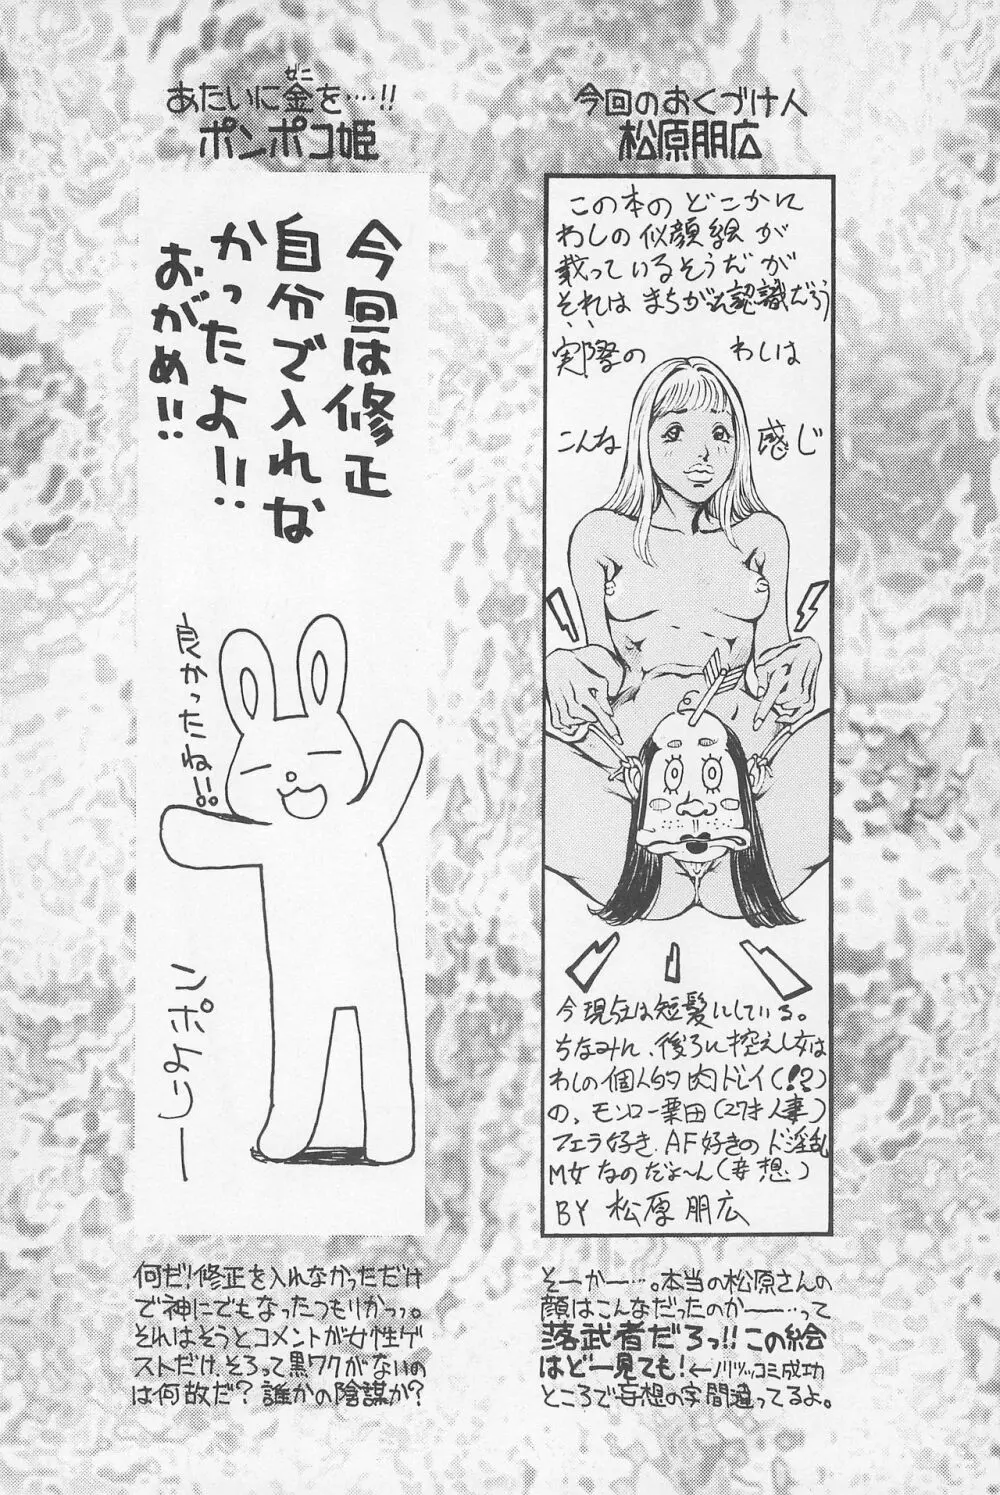 今回のおくづけ人
松原朋広
この本の どこかに
わしの似顔絵が
載っているそうだが
それは まちがえ認識だろう
・・・
実際の わしは
こんな 感じ
今現在は短髪にしている。
ちなみに、後ろに控えし女は
わしの個人的肉ドレイ(!?)
の、モンロー栗田(27才人妻)
フェラ好き、AF好きのド淫乱
M女なのだよ〜ん(妄想)
BY 松原朋広
そーかー…。本当の松原さんの
顔はこんなだったのかーー…って
落武者だろっ!!この絵
はどー見ても!←ノリツッコミ成功
ところで妄想の字間違ってるよ。
ぜに
あたいに金を…‥!!
ポンポコ姫
今回は修正
自分で入れな
かったよ!!
おがめ!!
良かったね!!
ンポより―
何だ!修正を入れなかっただけ
で神にでもなったつもりかっっ。
それはそうとコメントが女性ゲ
ストだけ、そろって黒ワクがないの
は何故だ?誰かの陰謀か?